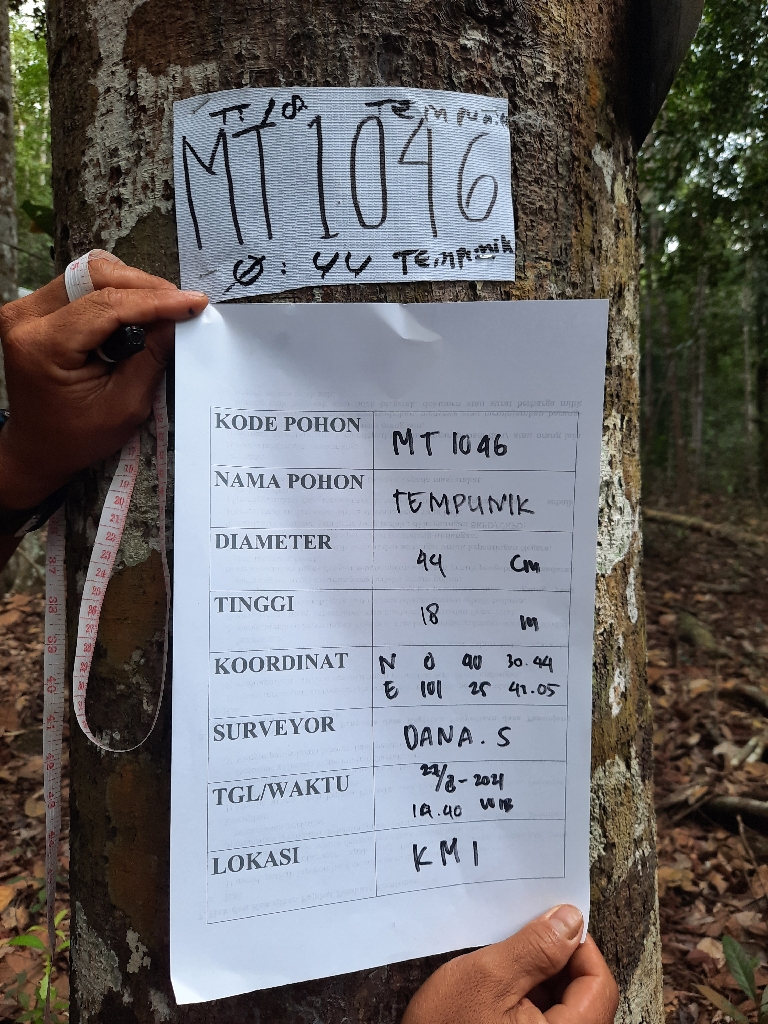 TI 18 TEMPUNIK
MT1046
Ø: 44 TEMPUNIK
KODE POHON MT 1046
NAMA POHON TEMPUNIK
DIAMETER 44 Cm
TINGGI 18 m
KOORDINAT N 0 40 30.44
E 101 25 41.05
SURVEYOR DANA. S
TGL/WAKTU 22/8-2021
14.40 WIB
LOKASI KM 1